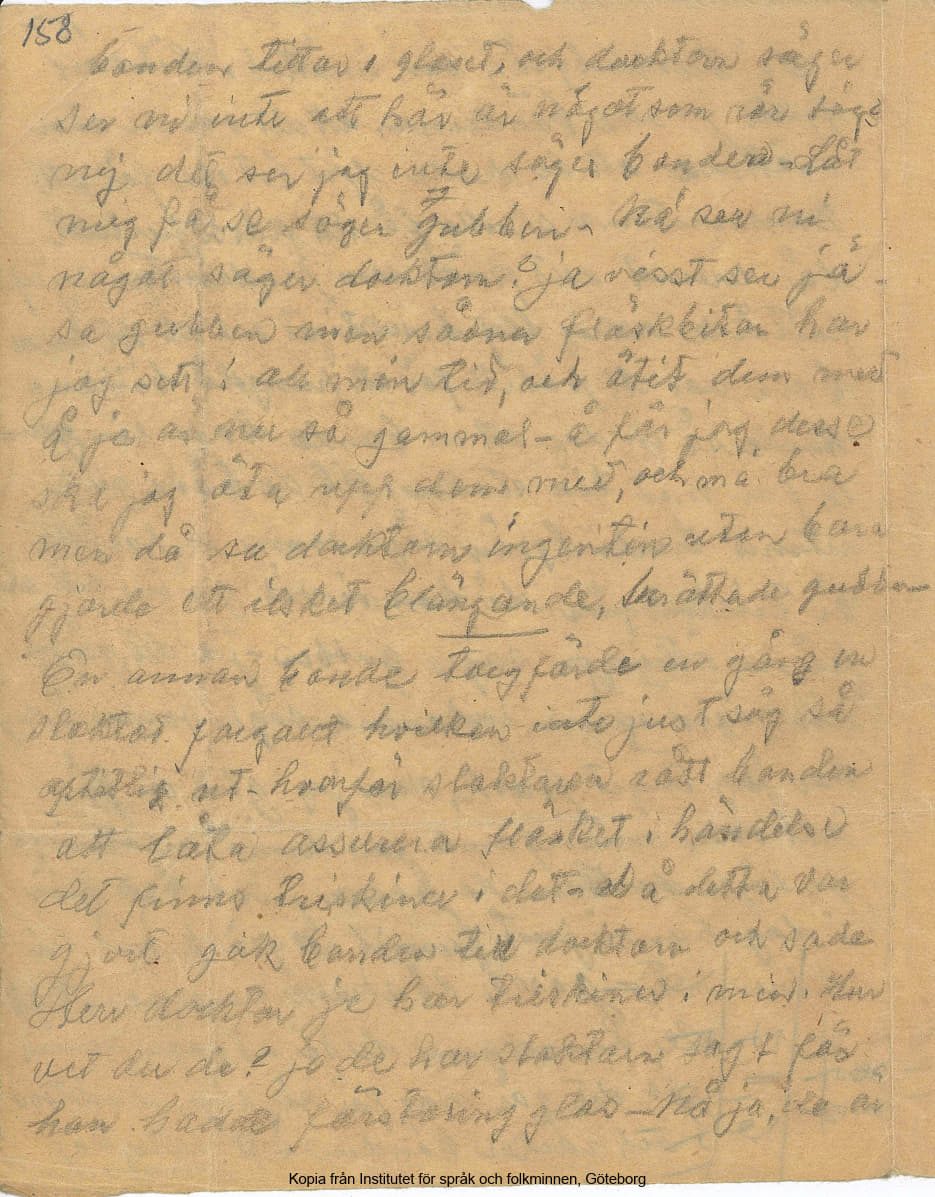 158
bonden tittar i glaset, och docktorn säger
ser ni inte att här är något som rör säge
nij det ser jag inte säger bonden – Låt
mig få se säger Gubben – Nå ser ni
något säger docktorn? ja visst ser ja –
sa gubben men sådna fläskbitar har
jag sett i all min tid, och ätit dem med
å ja är nu så gammal – å får jag desse
ska jag äta upp dem med, och må bra
men då sa docktorn ingenting utan bara
gjorde ett ilsket blängande, berättade gubben
En annan bonde en gång en
slaktad hvilken inte just såg så
aptitlig ut – hvarför slaktaren rått bonden
att låta assurera fläsket i händelse
det finns triskiner i det – Då detta var
gjort gick bonden till docktorn och sade
Herr docktor ja har triskiner i min. Hur
vet du de? jo de har slaktarn sagt för
han hadde förstoringglas – Nå ja, de är
Kopia från Institutet för språk och folkminnen, Göteborg